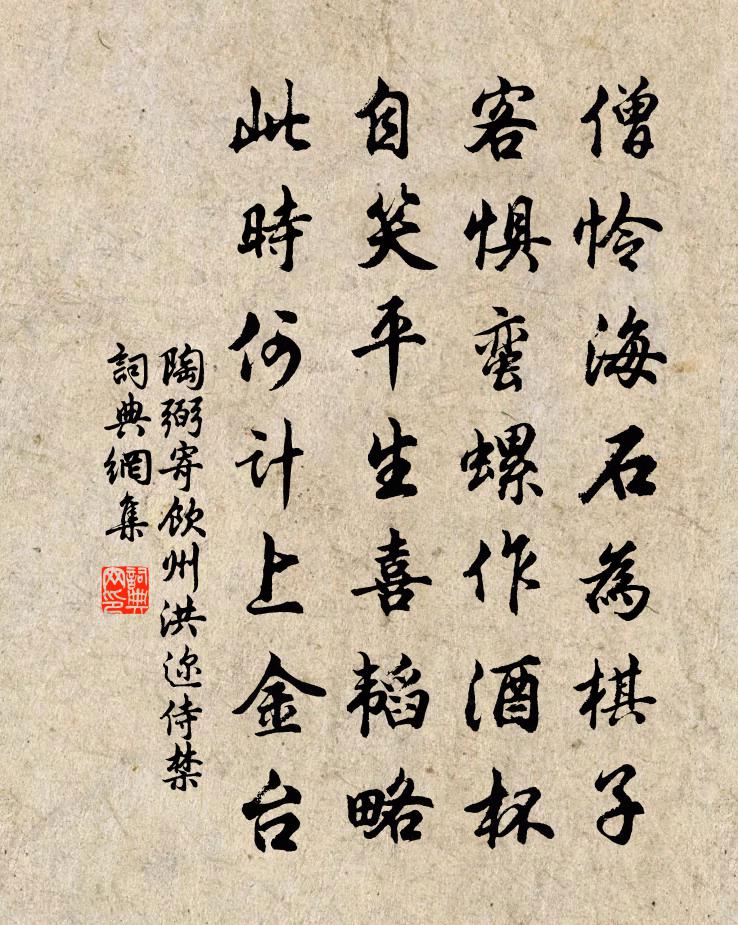 僧怜海石為棋子
客惧蛮螺作酒杯
自笑平生喜韬略
此時何计上金台
陶弼寄飲州洪迩侍禁
詞典網集
詞典
网印